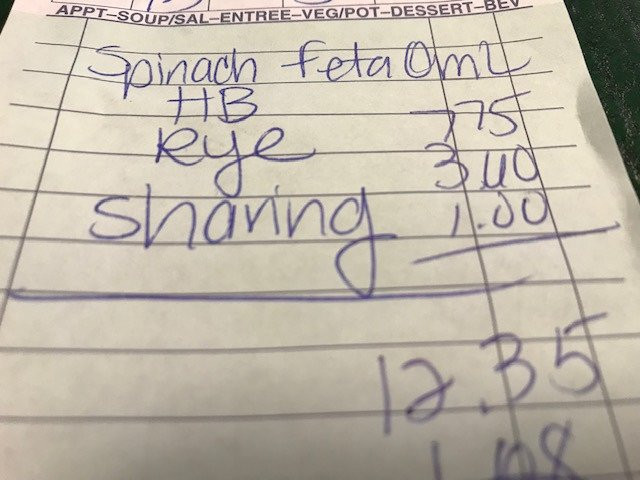 APPT–SOUP/SAL–ENTREE–VEG/POT–DESSERT–BEV
Spinach feta Oml
HB 7 75
Rye 3 60
Sharing 1.00
12.35
1.08